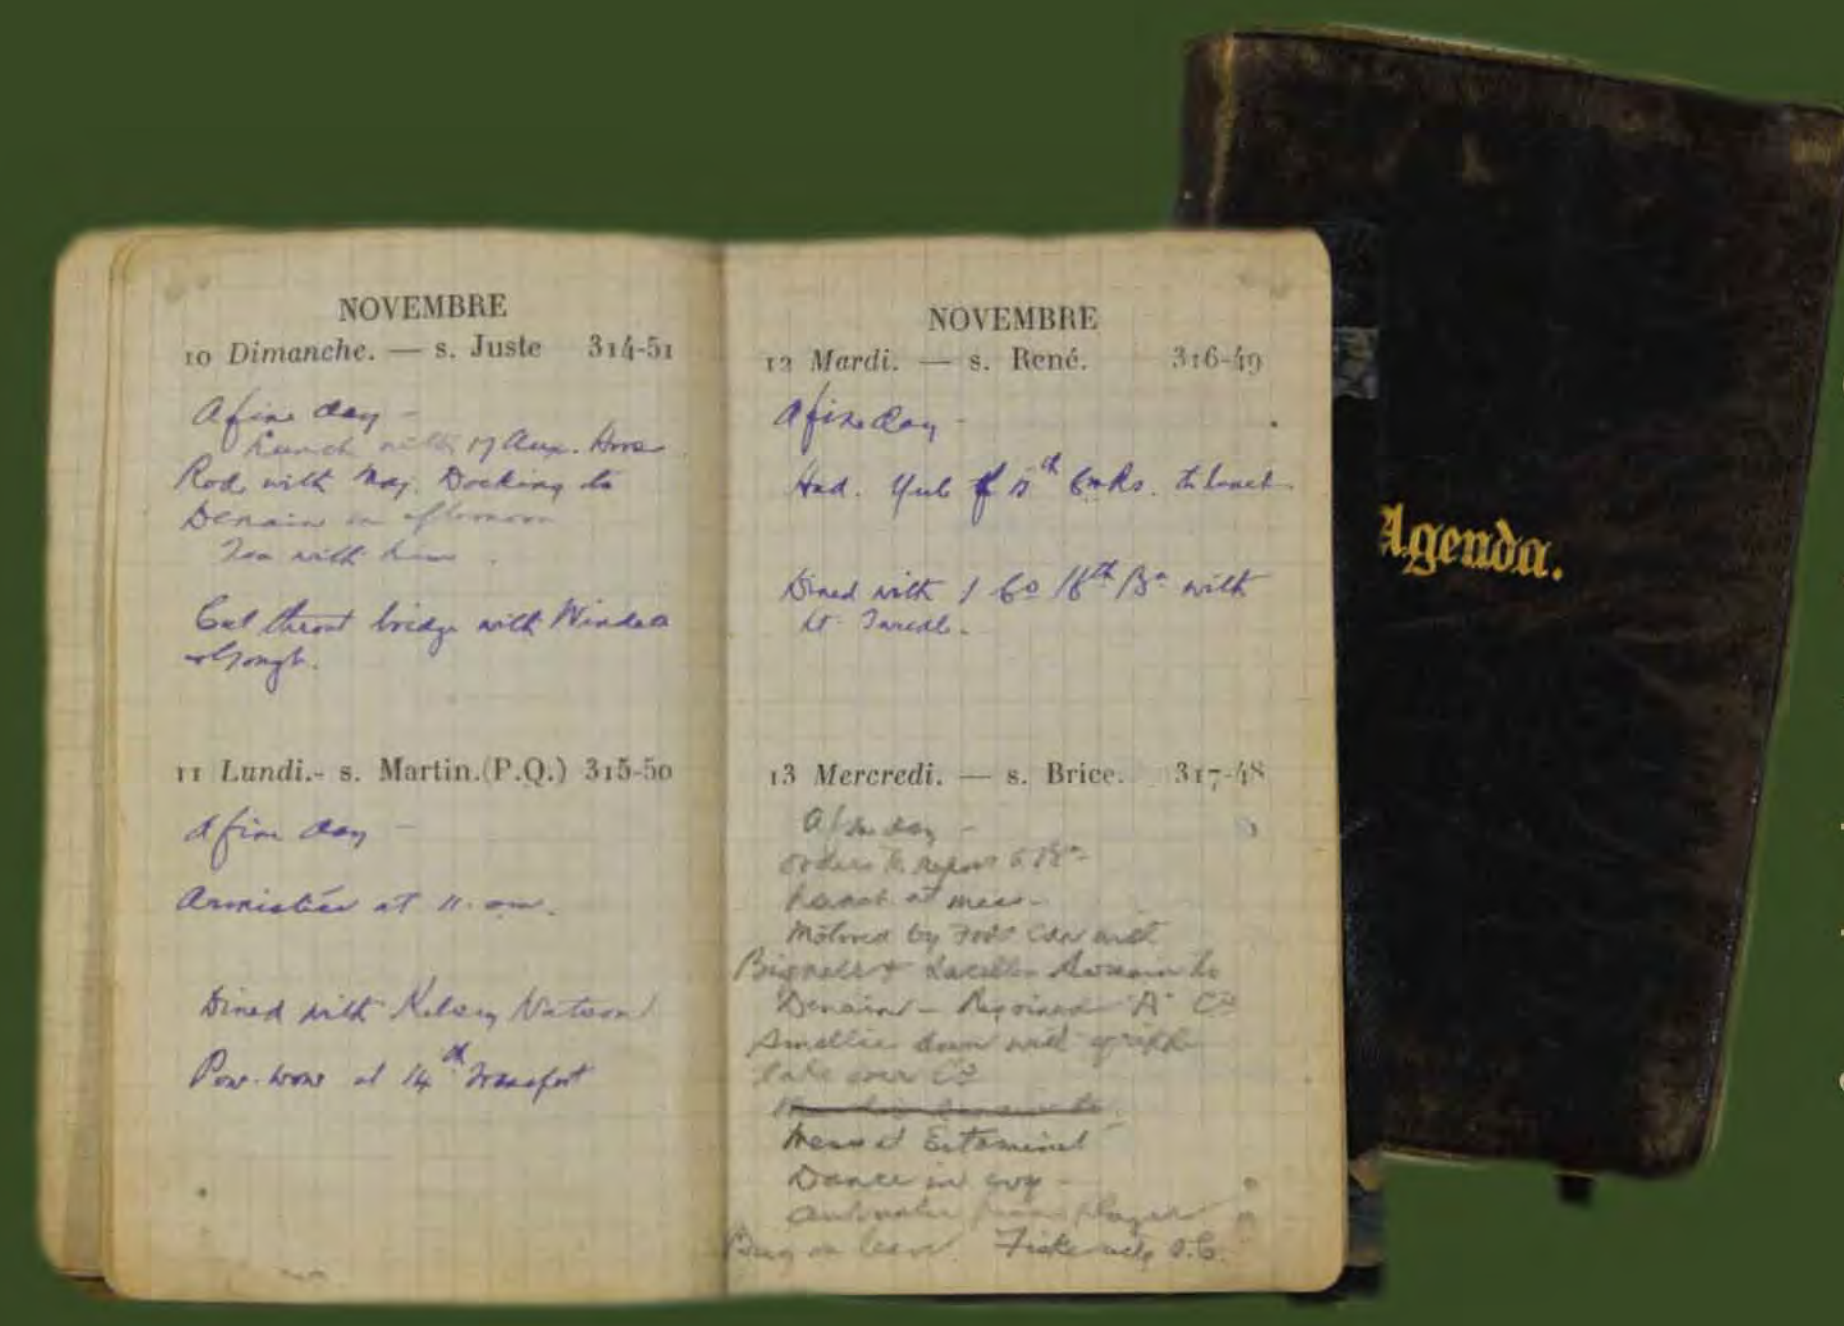 NOVEMBRE
10 Dimanche. — s. Juste 314-51
A fine day –
Lunch with 17 Aux. Horse
Rode with Maj. Docking to
Denain in afternoon
Tea with him.
Cut throat bridge with
11 Lundi.- s. Martin.(P.Q.) 315-50
A fine day –
Armistice at 11. am.
Dined with Kelsey Watson
Pow-wow at 14th Transport
NOVEMBRE
12 Mardi. — s. René. 316-49
A fine day -
Had. of to lunch
Dined with 1 Co 16th Bn with
Lt.
13 Mercredi. — s. Brice. 317-48
A fine day –
orders to report to Bn
Lunch at mess -
Motored by Ford Car with
to
Denain – Rejoined "A" Co
Smellie down with grippe
take over Co
Mess at Estaminet
Dance in evg -
automatic piano player
on leave O.C.
Agenda.